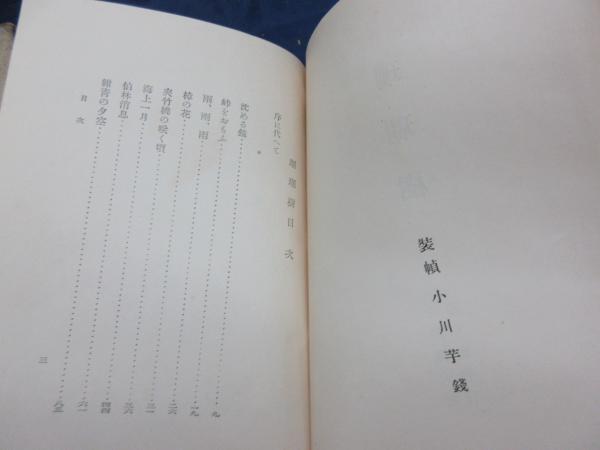 裝幀 小川芋錢
珊瑚樹目次
序に代へて
沈める鐘……九
峠をおもふ……一九
雨、雨、雨……二六
樟の花……三一
夾竹桃の咲く頃……三六
海上一月……四四
伯林消息……六一
紺青の夕空……八三
目次 三